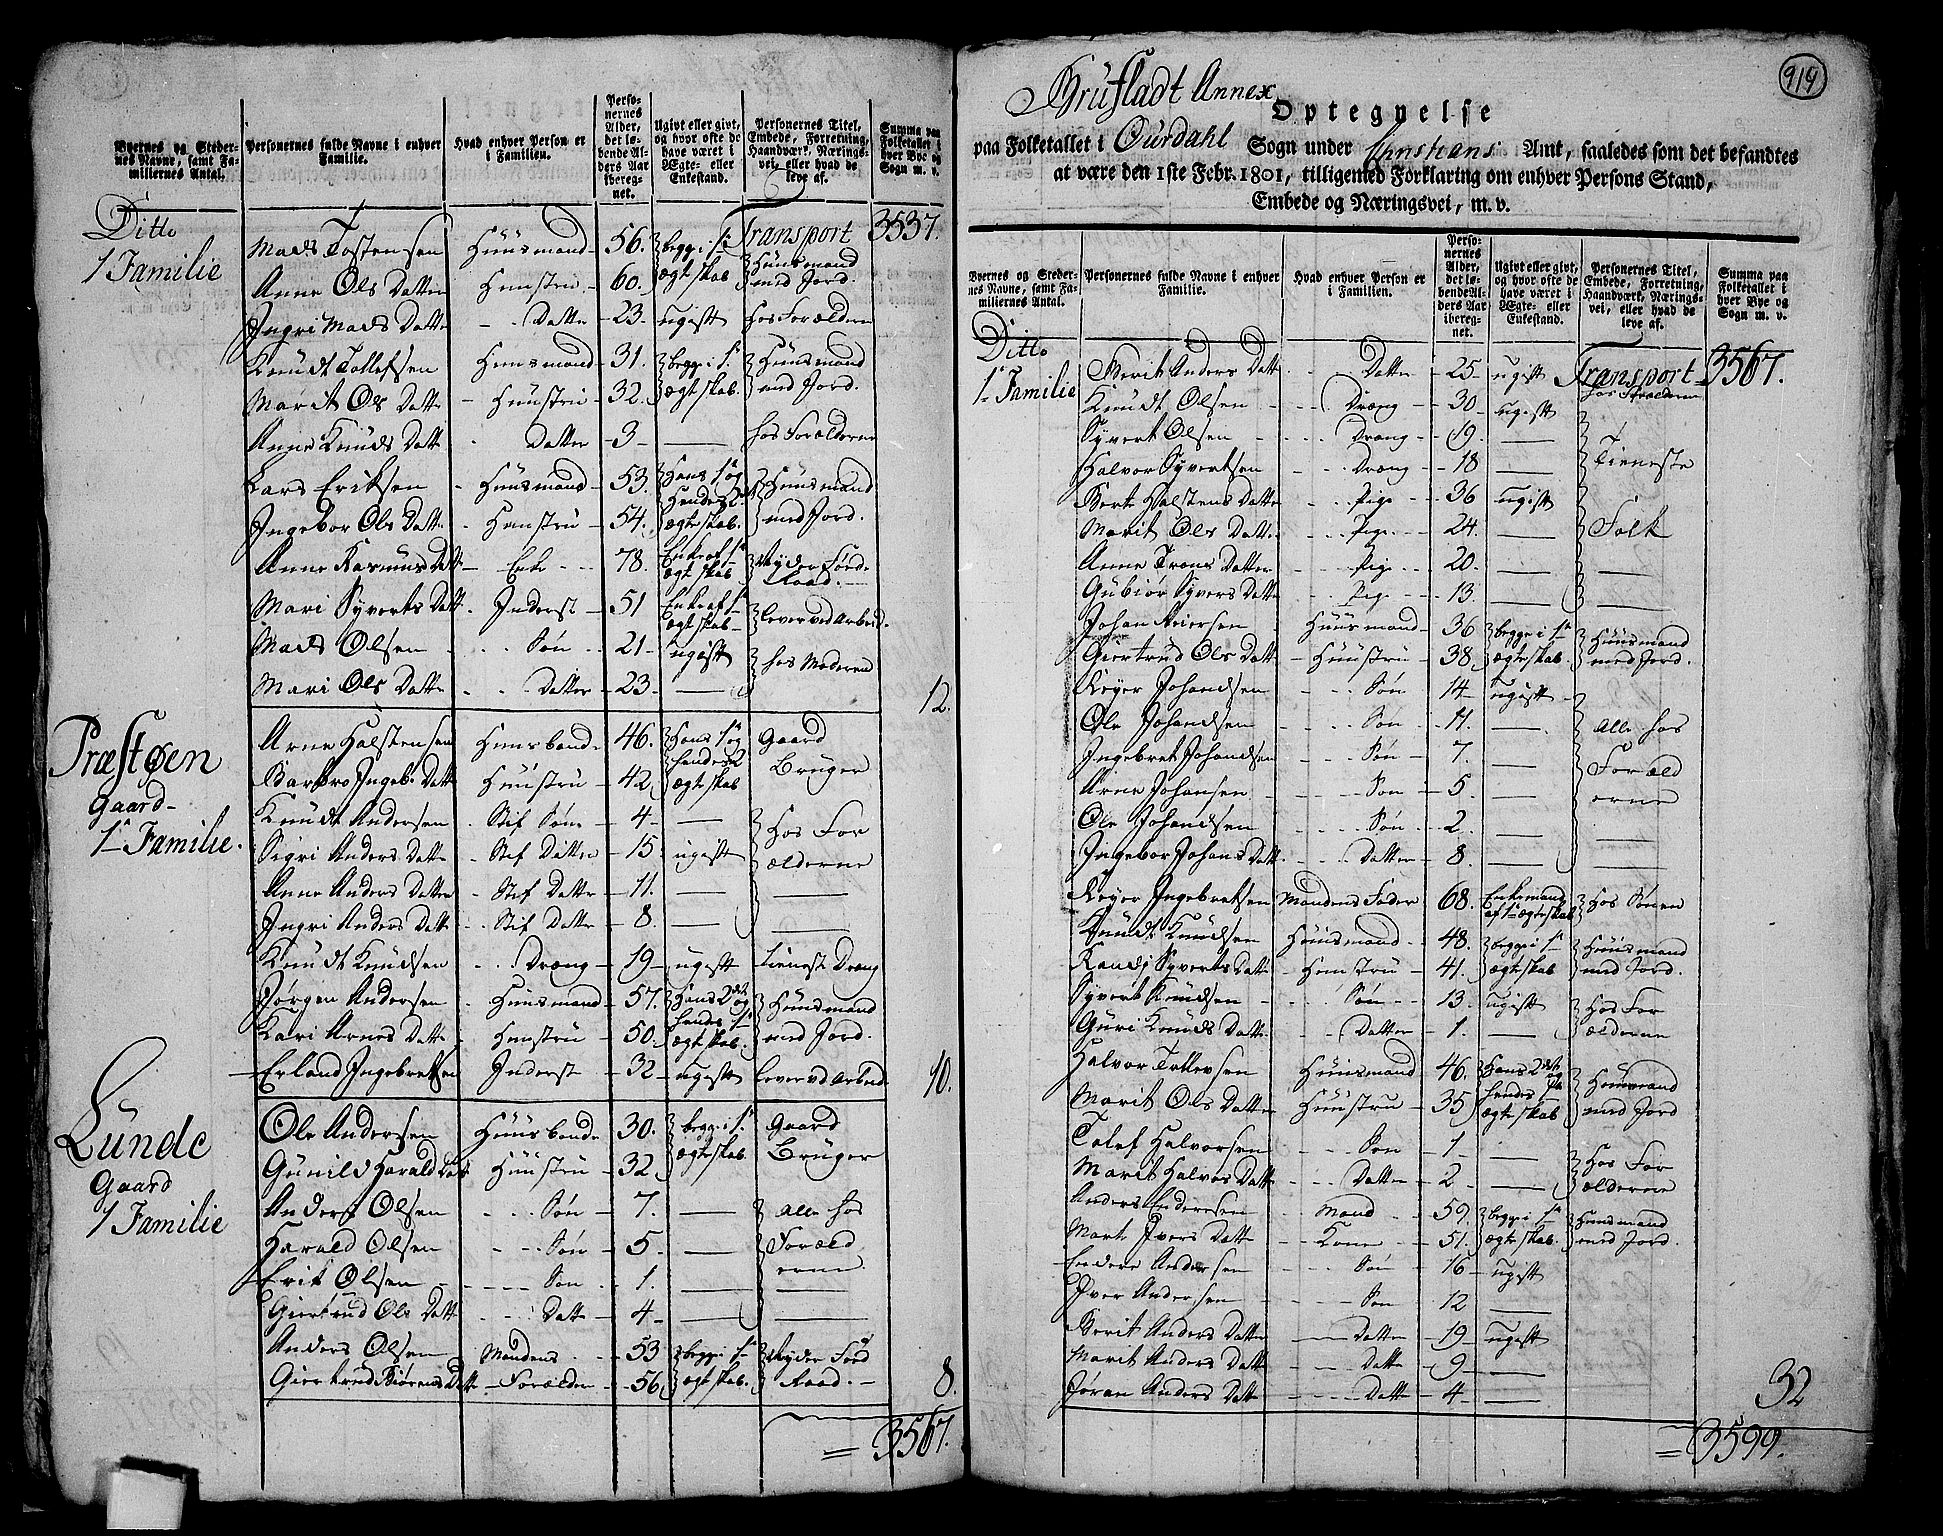 Byernes og Steder-
nes Navne, samt Fa-
miliernes Antal.
Personernes fulde Navne i enhver
Familie.
Hvad enhver Person er
i Familien.
Perso-
nernes
Alder,
det lø-
bende Al-
ders Aar
iberег-
net.
Ugivt eller givt,
og hvor ofte de
have været i
Ægte- eller
Enkestand.
Personernes Titel,
Embede, Forretning,
Haandværk, Nærings-
vei, eller hvad de
leve af.
Summa paa
Folketallet i
hver Bye og
Sogn m. v.
Transport 3537.
Ditto
1 Familie
Mads Tostensen Huusmand 56. begge i 1te Huusmand
Anne Ols Datter Hustru 60. ægteskab med Jord.
Ingri Mads Datter Datter 23. ugivt hos Forældren
Knudt Tollefsen Huusmand 31. begge i 1te Huusmand
Marit Ols Datt Huustru 32. ægteskab. med Jord.
Anne Knuds Datt Datter 3 — hos Forælderne
Lars Eriksen Huusmand 53. Hans 1te og Huusmand
Ingebor Ols Datt Hustru 54. Hendes 2det ægteskab. med Jord.
Anne Rasmus Datt Enke 78. Enke af 1te ægteskab Nyder Føderaad.
Mari Syverts Datt Inderst 51 Enke af 1te ægteskab lever ved Arbeid.
Mads Olsen Søn 21 ugivt hos Moderen
Mari Ols Datt Datter 23 —
12.
Præstøen
Gaard
1 Familie.
Arne Halstensen Huusbonde 46. Hans 1te og Gaard
Barbro Ingeb. Datt Huustru 42 hendes 2 ægteskab Bruger
Knudt Andersen Stif Søn 4 — Hos For
Sigri Anders Datt Stef Datter 15 ugivt ælderne
Anne Anders Datter Stif Datter 11. —
Ingri Anders Datt Stif Datter 8. —
Knudt Knudsen Dræng 19 ugivt tienest Dræng
Jørgen Andersen Huusmand 57. Hans 2det og Huusmand
Kari Arnes Datt Hustru 50. hendes 1te ægteskab. med Jord.
Erland Ingebretsen Inderst 32 ugivt lever ved Arbeid.
10.
Lunde
Gaard
1 Familie
Ole Andersen Huusbonde 30. begge i 1te Gaard
Gunild Harald Dat Huustru 32. ægteskab. Bruger
Anders Olsen Søn 7. — Alle hos
Harald Olsen Søn 5. — Foræld
Erik Olsen Søn 1. — erne
Giertrud Ols Datt Datt 4 —
Anders Olsen Mandens 53 begge i 1te Nyder Føde
Giertrud Biørens Datt Forælder 56 ægteskab. Raad.
8.
3567.
919
Brufladt Annex
Optegnelse
paa Folketallet i Ourdahl Sogn under Christians Amt, saaledes som det befandtes
at være den 1ste Febr. 1801, tilligemed Forklaring om enhver Persons Stand,
Embede og Næringsvei, m. v.
Byernes og Steder-
nes Navne, samt Fa-
miliernes Antal.
Personernes fulde Navne i enhver
Familie.
Hvad enhver Person er
i Familien.
Perso-
nernes
Alder,
det lø-
bende Al-
ders Aar
iberег-
net.
Ugivt eller givt,
og hvor ofte de
have været i
Ægte- eller
Enkestand.
Personernes Titel,
Embede, Forretning,
Haandværk, Nærings-
vei, eller hvad de
leve af.
Summa paa
Folketallet i
hver Bye og
Sogn m. v.
Transport 3567.
Ditto
1 Familie
Berit Anders Datt Datter 25 ugivt hos Forælderne
Knudt Olsen Dræng 30 ugivt
Syvert Olsen Dræng 19. — Tieneste
Halvor Syvertsen Dræng 18 —
Berte Halstens Datter Pige 36 ugivt
Marit Ols Datter Pige 24. — Folk
Anne Trons Datter Pige 20. —
Gubiør Syvers Datt Pige 13. —
Johan Reiersen Huusmand 36 begge i 1te Huusmand
Giertrud Ols Datt Huustru 38. ægteskab med Jord.
Reyer Johandsen Søn 14 ugivt
Ole Johandsen Søn 11. — Alle hos
Ingebret Johandsen Søn 7. — Foræld
Arne Johansen Søn 5. — erne
Ole Johandsen Søn 2. —
Ingebor Johans Datt Datter 8. —
Reyer Ingebretsen Mandens Fader 68. Enkemand af 1te ægteskab Hos Sønnen
Knudt Knudsen Huusmand 48. begge i 1te Huusmand
Randi Syverts Datt Hustru 41. ægteskab med Jord.
Syvert Knudsen Søn 13. ugivt Hos For
Guri Knuds Datt Datter 1. — ælderne
Halvor Tollevsen Huusmand 46. Hans 2det og Huusmand
Marit Ols Datter Huustru 35 hendes 1te ægteskab med Jord
Tolef Halvorsen Søn 1 — Hos For
Marit Halvors Datt Datter 2 — ælderne
Anders Endresen Mand 59. begge i 1te Huusmand
Marte Ivers Datt Kone 51. ægteskab. med Jord.
Endre Andersen Søn 16 ugivt
Iver Andersen Søn 12 —
Berit Anders Datter Datter 19 ugivt
Marit Anders Datt Datt 9 —
Jøran Anders Datt Datt 4 —
32
3599.